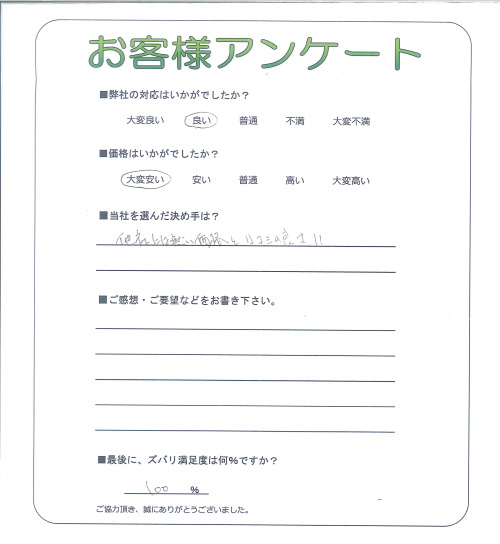 お客様アンケート
■弊社の対応はいかがでしたか？
大変良い 良い 普通 不満 大変不満
■価格はいかがでしたか？
大変安い 安い 普通 高い 大変高い
■当社を選んだ決め手は？
他社には無い価格と口コミの良さ!!
■ご感想・ご要望などをお書き下さい。
■最後に、ズバリ満足度は何％ですか？
100 ％
ご協力頂き、誠にありがとうございました。